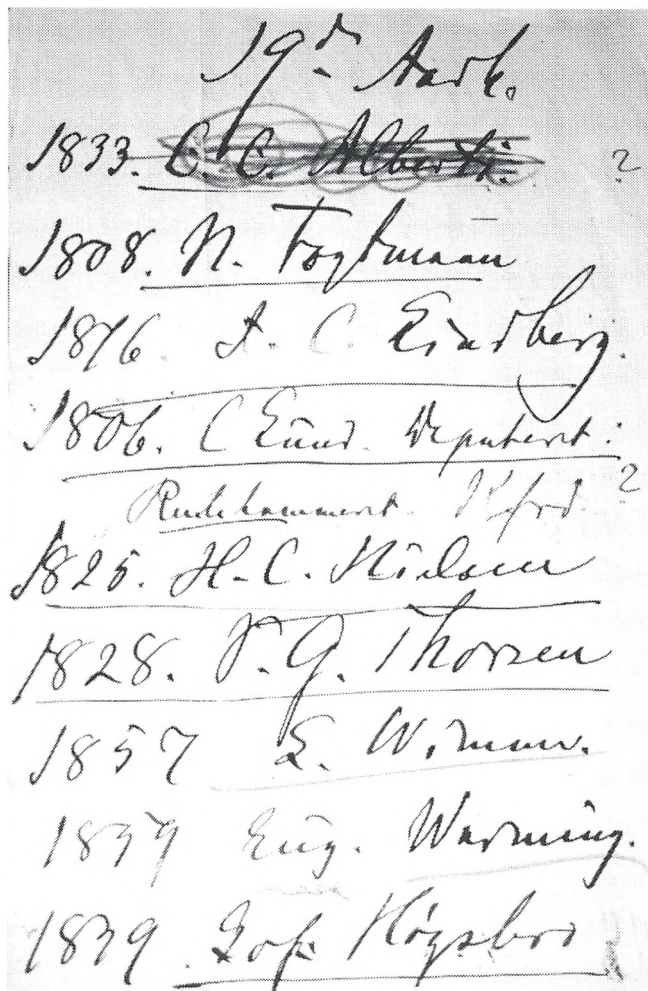 19de Aarh.
1833. C. C. Alberti. ?
1808. N. Fogtmann
1816. J. C. Lindberg.
1806. C Lund. Deputeret:
Rentekammeret. ?
1825. H. C. Nielsen
1828. P. G. Thorsen
1857 L. Wimmer.
1859 Eug. Warming.
1839 Sof. Høgsbro